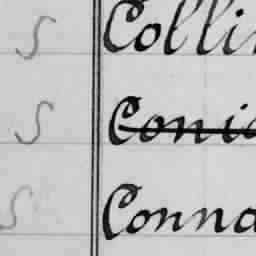 S Colli
S Conic
S Conna